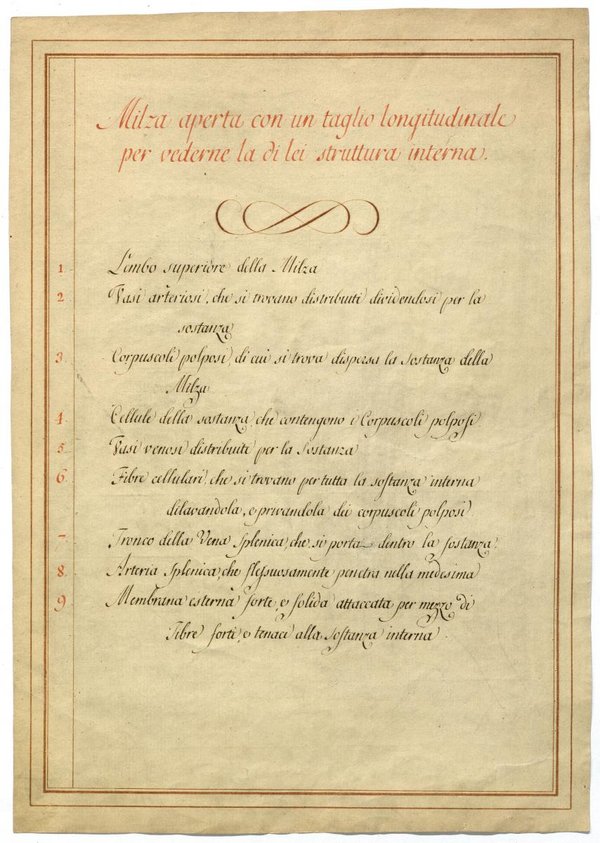 Milza aperta con un taglio longitudinale
per vederne la di lei struttura interna.
1. Lembo superiore della Milza
2. Vasi arteriosi, che si trovano distribuiti dividendosi per la
sostanza
3. Corpuscoli polposi, di cui si trova dispersa la Sostanza della
Milza
4. Cellule della sostanza, che contengono i Corpuscoli polposi
5. Vasi venosi distribuiti per la Sostanza
6. Fibre cellulari, che si trovano per tutta la sostanza interna
dilavandola, e privandola dei corpuscoli polposi.
7. Tronco della Vena Splenica, che si porta dentro la sostanza.
8. Arteria Splenica, che flessuosamente penetra nella medesima
9. Membrana esterna forte, e solida attaccata per mezzo di
Fibre forti, e tenaci alla Sostanza interna.